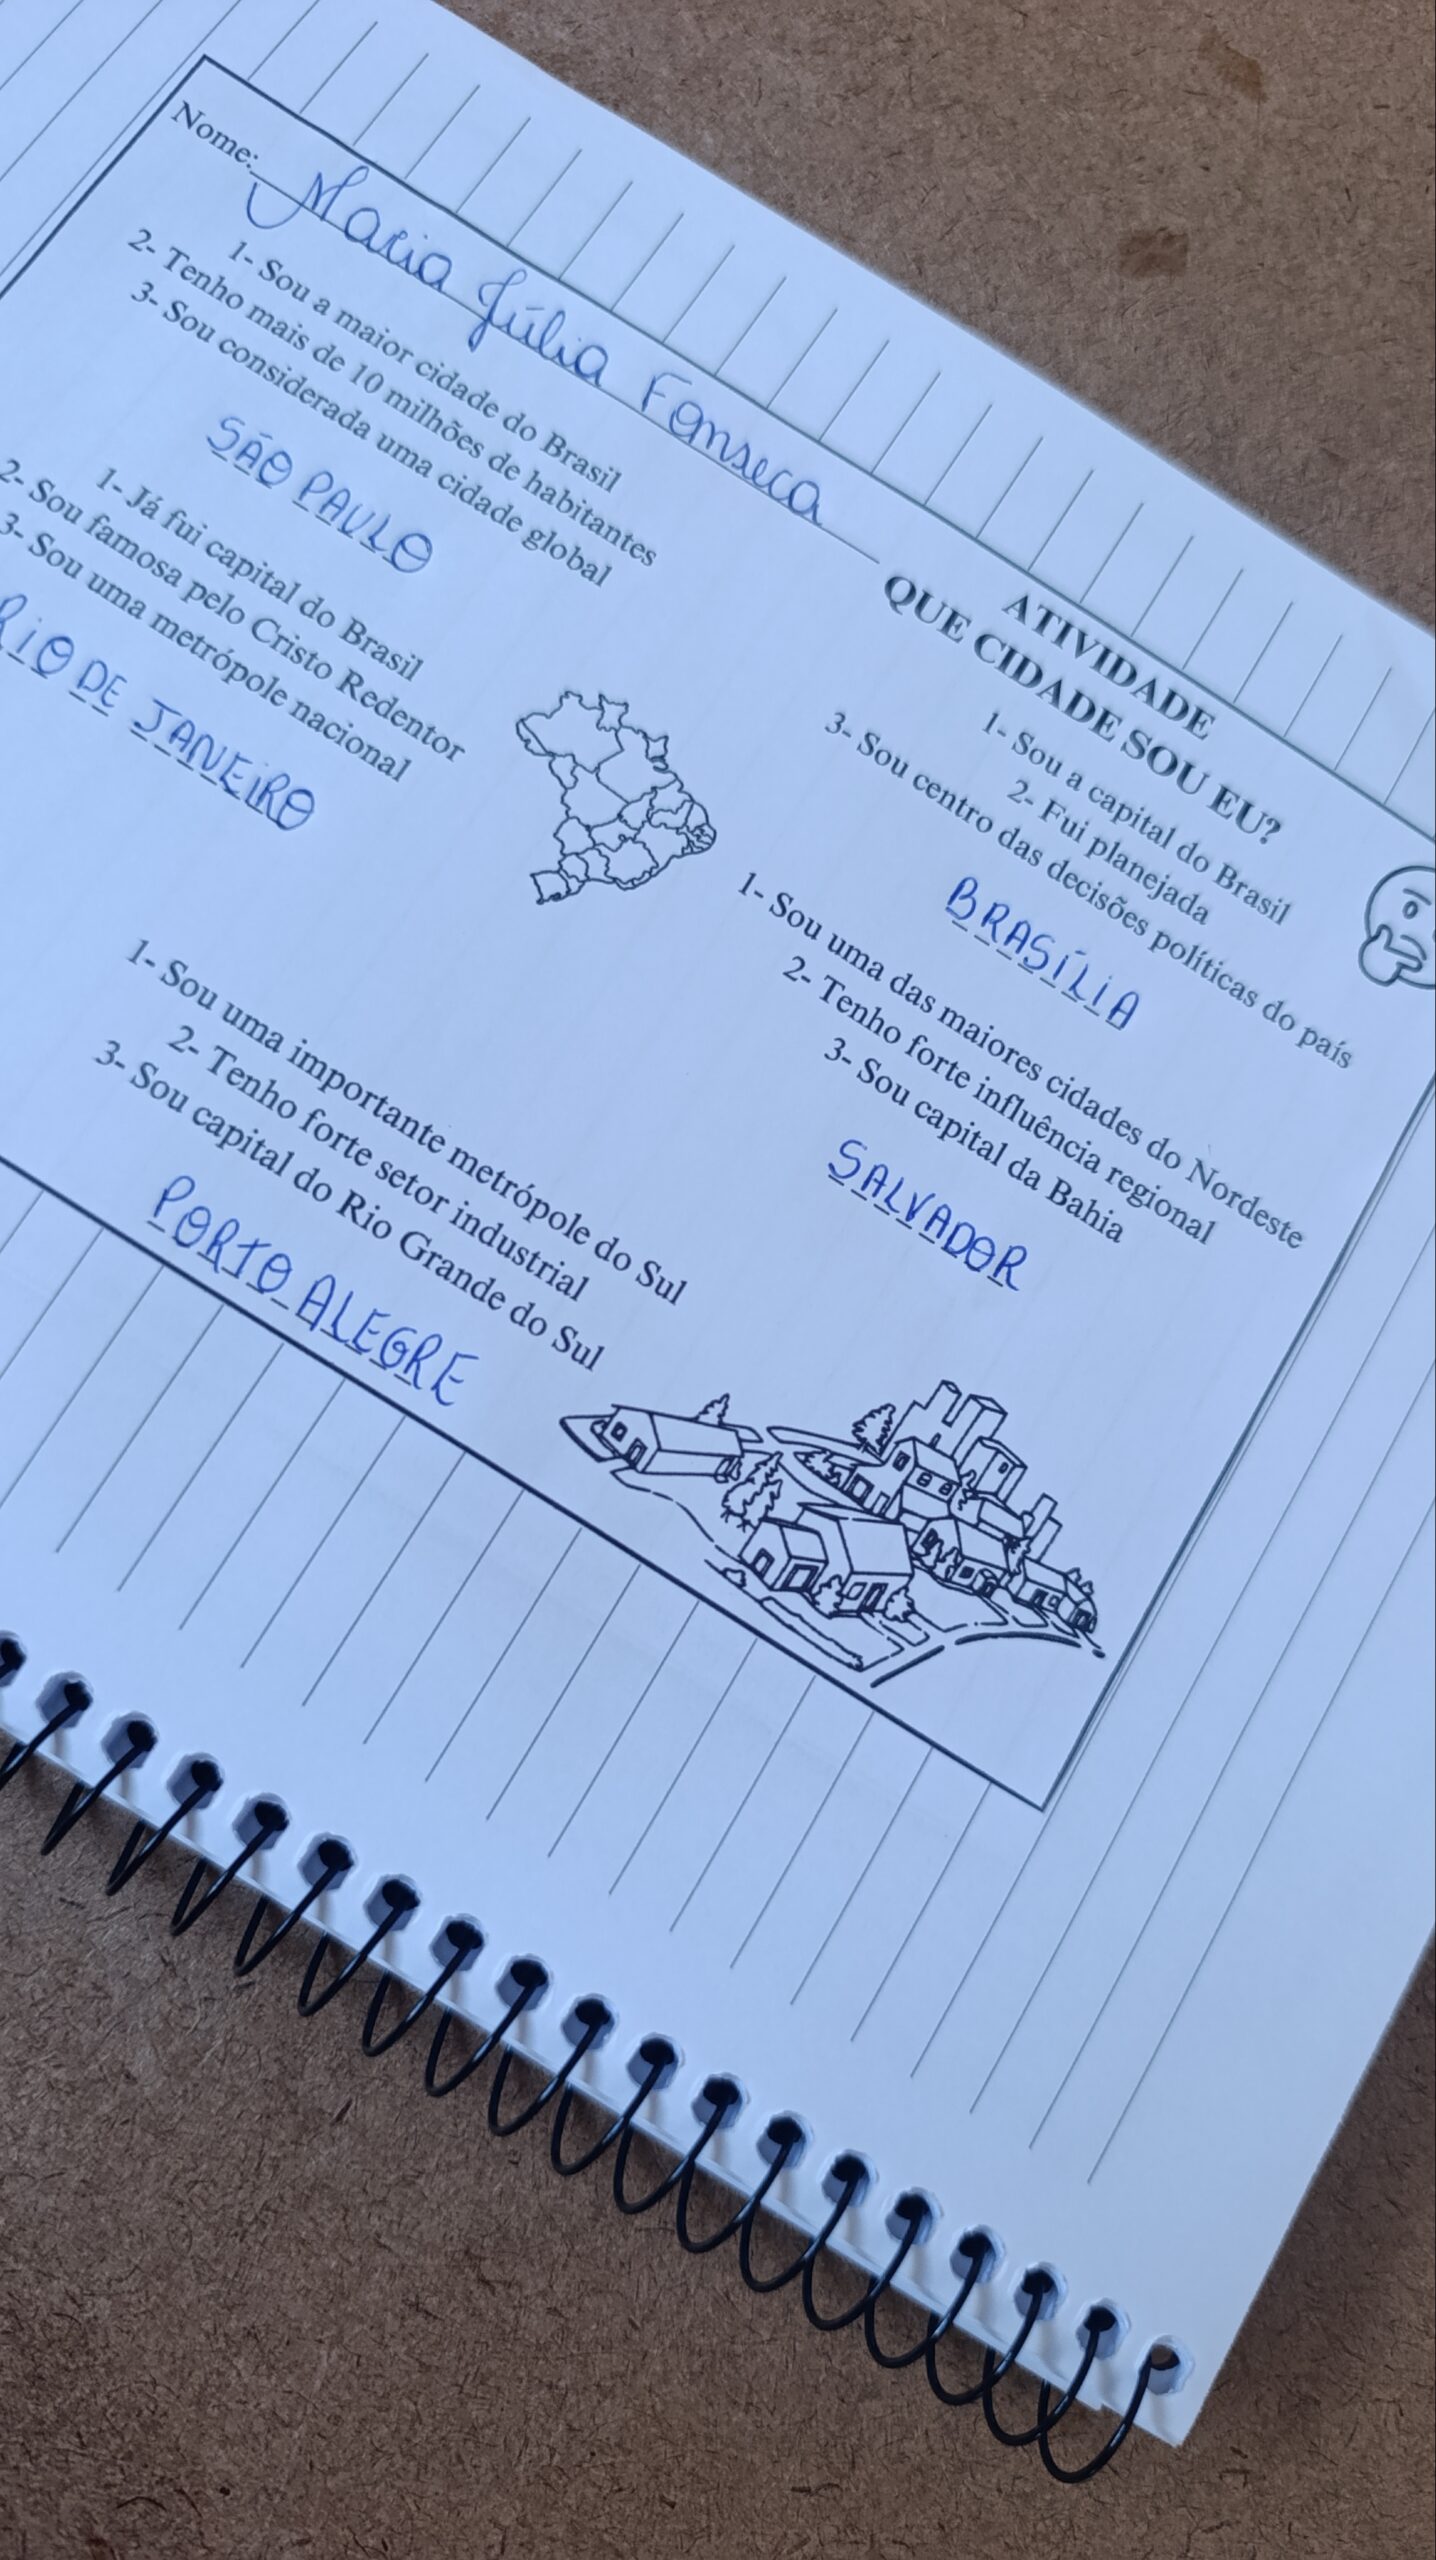 Nome: Maria Júlia Fonseca
ATIVIDADE
QUE CIDADE SOU EU?
1- Sou a maior cidade do Brasil
2- Tenho mais de 10 milhões de habitantes
3- Sou considerada uma cidade global
SÃO PAULO
1- Já fui capital do Brasil
2- Sou famosa pelo Cristo Redentor
3- Sou uma metrópole nacional
RIO DE JANEIRO
1- Sou a capital do Brasil
2- Fui planejada
3- Sou centro das decisões políticas do país
BRASÍLIA
1- Sou uma das maiores cidades do Nordeste
2- Tenho forte influência regional
3- Sou capital da Bahia
SALVADOR
1- Sou uma importante metrópole do Sul
2- Tenho forte setor industrial
3- Sou capital do Rio Grande do Sul
PORTO ALEGRE